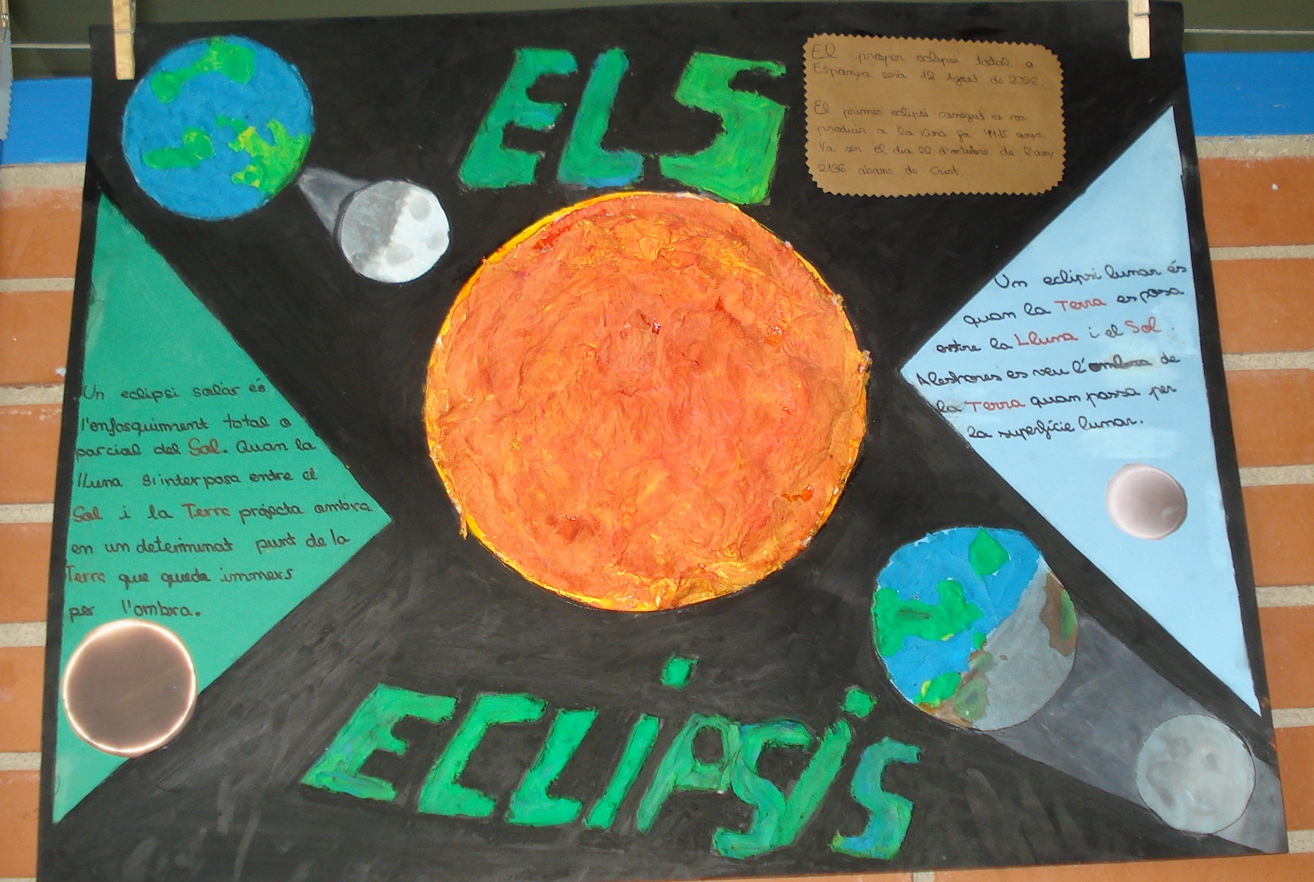 ELS
El proper eclipsi total a
Espanya serà 12 Agost de 2026.
El primer eclipsi conegut es va
produir a la xina fa 4115 anys.
Va ser el dia 22 d'octubre de l'any
2136 abans de Crist.
Un eclipsi solar és
l'enfosquiment total o
parcial del Sol. Quan la
lluna s'interposa entre el
Sol i la Terra projecta ombra
en un determinat punt de la
Terra que queda immers
per l'ombra.
Un eclipsi lunar és
quan la Terra es posa
entre la Lluna i el Sol.
Aleshores es veu l'ombra de
la Terra quan passa per
la superfície lunar.
ECLIPSIS